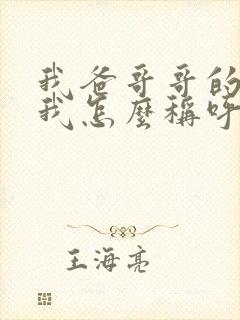 我爸哥哥的
我怎麼稱呼
王海亮